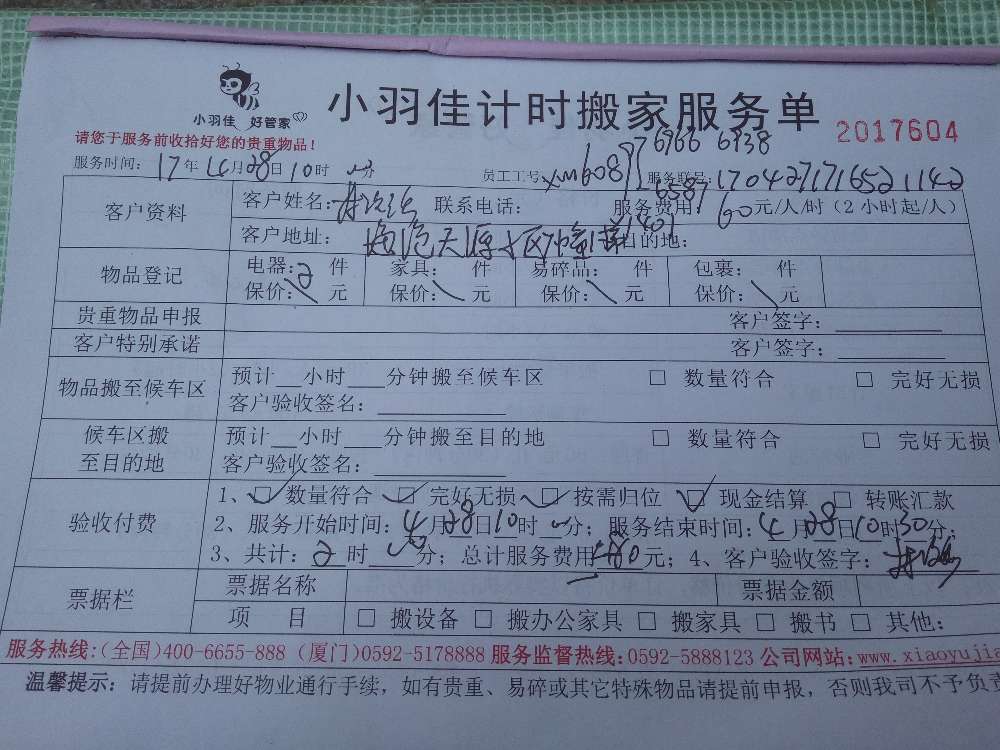 小羽佳 好管家
小羽佳计时搬家服务单
2017604
请您于服务前收拾好您的贵重物品！
6966 6938
服务时间：17年4月28日10时 分 员工工号：xm608 服务联号：1704271716521142
6587
客户资料 客户姓名： 联系电话： 服务费用：60元/人/时（2小时起/人）
客户地址： 天源 区 1401 目的地：
物品登记 电器：2件 家具： 件 易碎品： 件 包裹： 件
保价：＼元 保价：＼元 保价：＼元 保价：＼元
贵重物品申报 客户签字：
客户特别承诺 客户签字：
物品搬至候车区 预计__小时___分钟搬至候车区 □ 数量符合 □ 完好无损
客户验收签名：
候车区搬至目的地 预计__小时___分钟搬至目的地 □ 数量符合 □ 完好无损
客户验收签名：
验收付费 1、☑数量符合 ☑完好无损 ☑按需归位 ☑现金结算 □ 转账汇款
2、服务开始时间：4月28日10时 分；服务结束时间：4月28日10时30分；
3、共计：2时 分；总计服务费用 元；4、客户验收签字：
票据栏 票据名称 票据金额
项 目 □ 搬设备 □ 搬办公家具 □ 搬家具 □ 搬书 □ 其他：
服务热线：(全国)400-6655-888 (厦门)0592-5178888 服务监督热线：0592-5888123 公司网站：www.xiaoyujia
温馨提示：请提前办理好物业通行手续，如有贵重、易碎或其它特殊物品请提前申报，否则我司不予负责